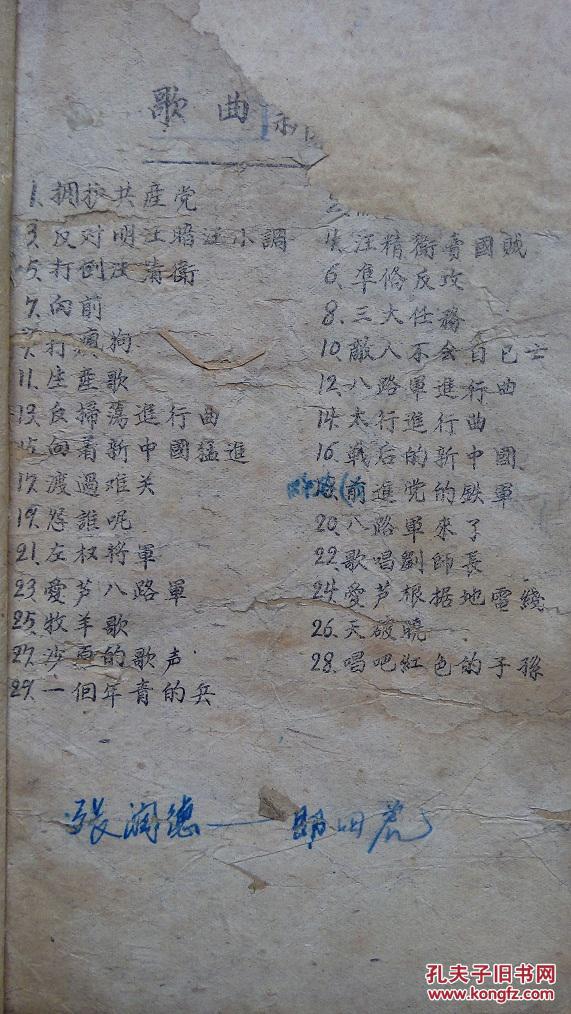 歌曲
1.拥护共産党
3.反对明汪暗汪小調 4.汪精衛賣國賊
5.打倒汪精衛 6.準俻反攻
7.向前 8.三大任務
9.打瘋狗 10.敵人不会自已亡
11.生産歌 12.八路軍進行曲
13.反掃蕩進行曲 14.太行進行曲
15.向着新中國猛進 16.戰后的新中國
17.渡過难关 前進党的鉄軍
19.怨誰呢 20.八路軍来了
21.左权将軍 22.歌唱劉師長
23.愛芦八路軍 24.愛芦根据地電綫
25.牧羊歌 26.天破曉
27.沙面的歌声 28.唱吧紅色的子孫
29.一個年青的兵
张润德
孔夫子旧书网
www.kongfz.com